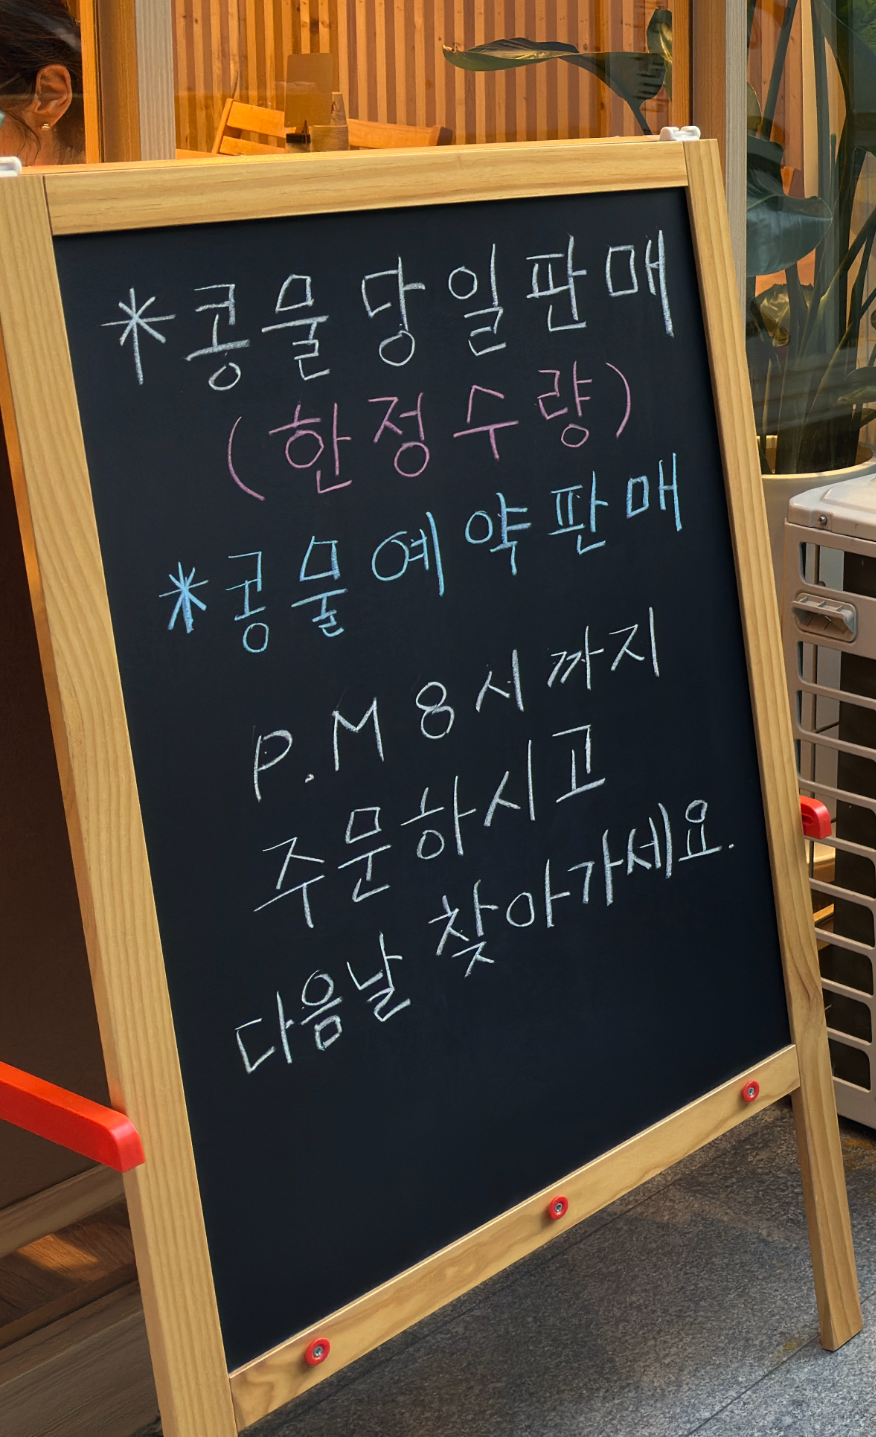 *콩물당일판매
(한정수량)
*콩물예약판매
P.M 8시까지
주문하시고
다음날 찾아가세요.